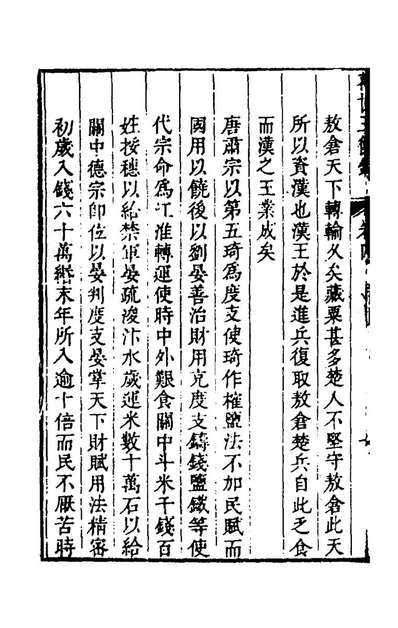 敖倉天下轉輸久矣藏粟甚多楚人不堅守敖倉此天
所以資漢也漢王於是進兵復取敖倉楚兵自此乏食
而漢之王業成矣
唐肅宗以第五琦爲度支使琦作榷鹽法不加民賦而
國用以饒後以劉晏善治財用充度支鑄錢鹽鐵等使
代宗命爲江淮轉運使時中外艱食關中斗米千錢百
姓挼穗以給禁軍晏疏浚汴水歲運米數十萬石以給
關中德宗卽位以晏判度支晏掌天下財賦用法精密
初歲入錢六十萬緡末年所入逾十倍而民不厭苦時